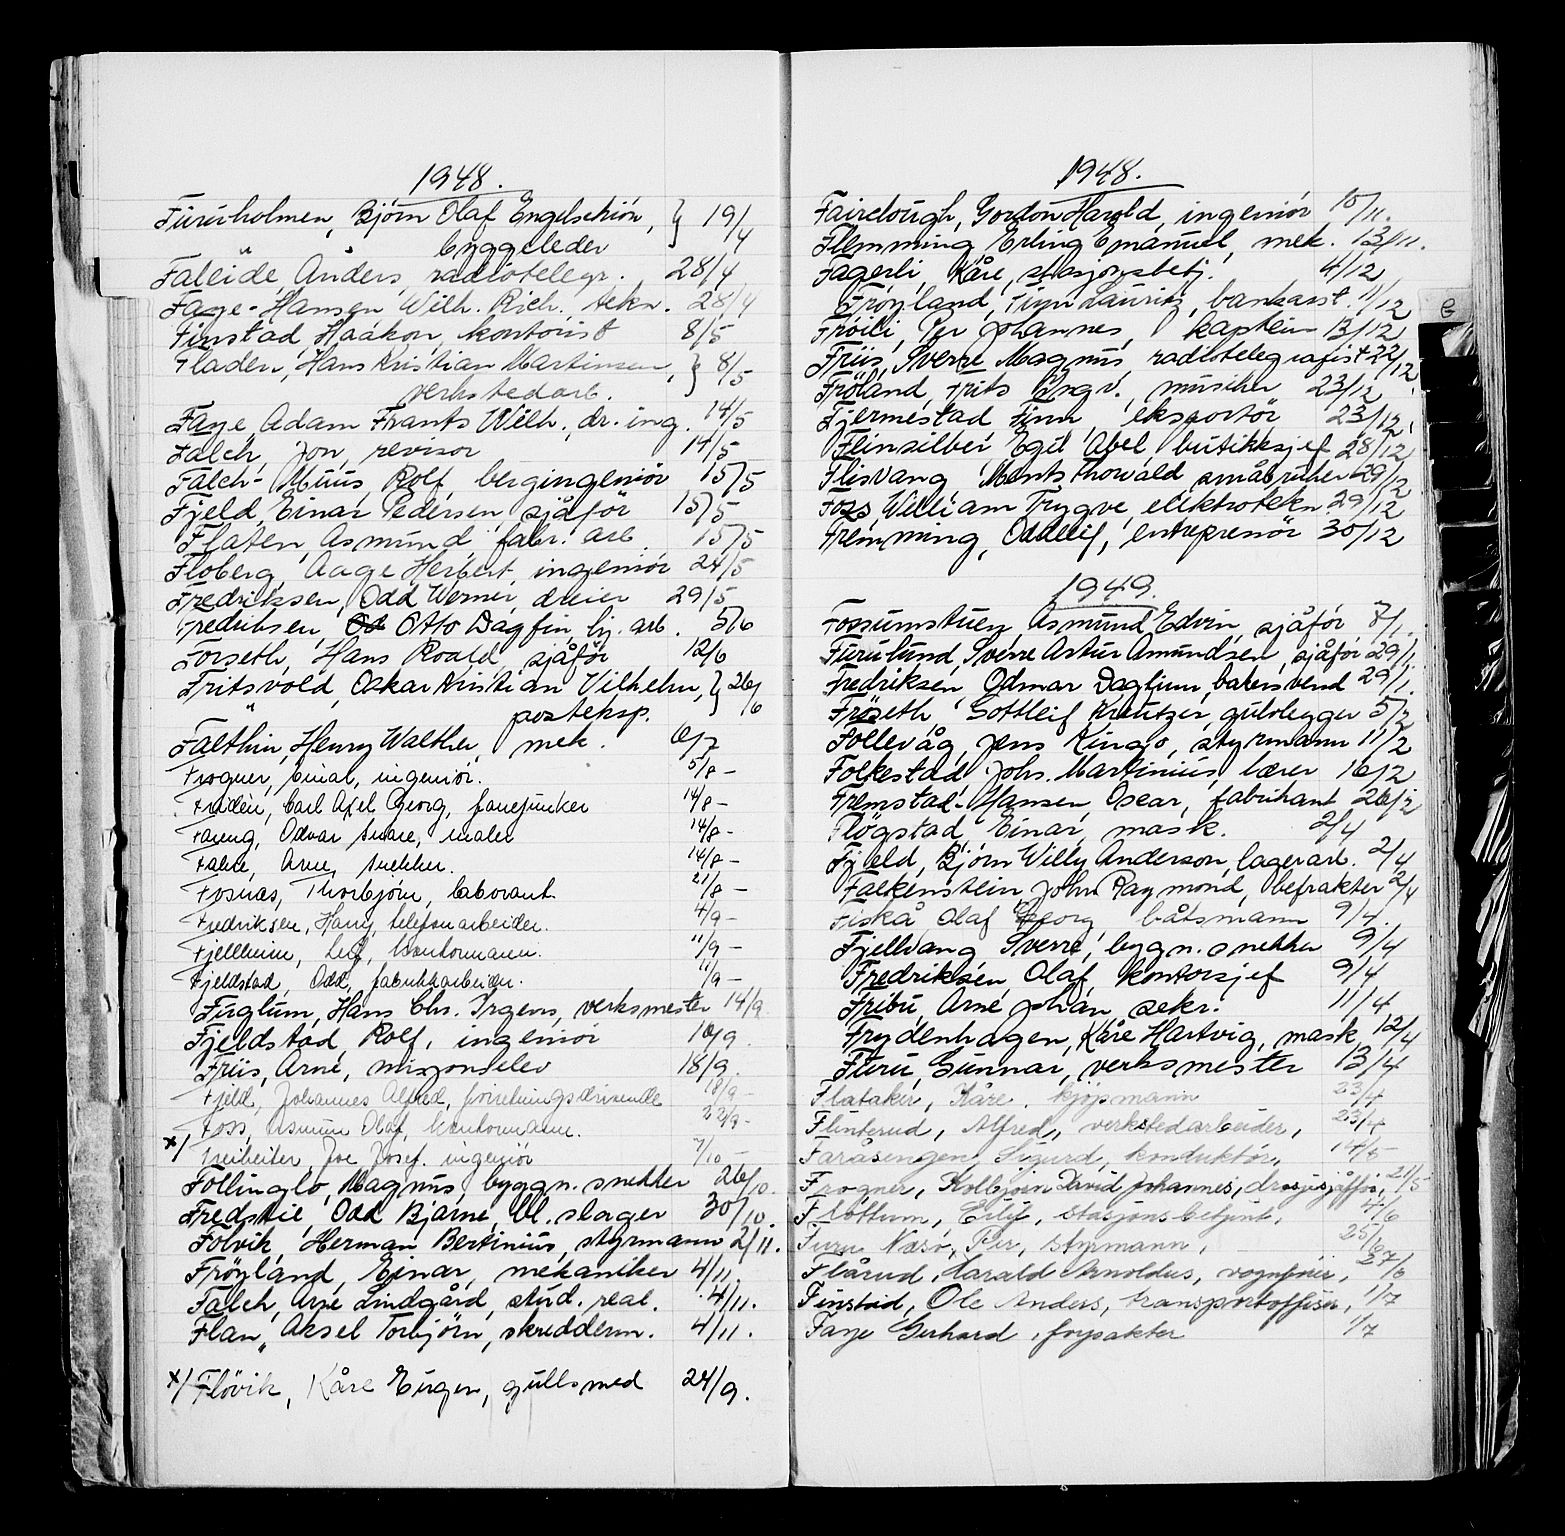 1948.
Furuholmen, Bjørn Olaf Engelsehiøn, } 19/4
byggeleder
Faleide, Anders, radiotelegr. 28/4
Faye-Hansen Wilh. Rich., tekn. 28/4
Finstad, Haakon, kontorist 8/5
Fladen, Hans Kristian Martinsen, } 8/5
verkstedarb.
Faye, Adam Frants Wilh., dr. ing. 14/5
Falch, Jon, revisor 14/5
Falch-Muus, Rolf, bergingeniør 15/5
Fjeld, Einar Pedersen, sjåför 15/5
Flaten, Asmund fabr. arb. 15/5
Floberg, Aage Herbert, ingeniør 24/5
Fredriksen, Odd Werner, dreier 29/5
Fredriksen, Otto Dagfin, hj. arb. 5/6
Forseth, Hans Roald, sjåför 12/6
Fritsvold, Oskar Kristian Vilhelm, } 26/6
posteksp.
Fælthin, Henry Walther, mek. 6/7
Frogner, Einar, ingeniør. 5/8 –
Fridén, Carl Axel Georg, fanejunker 14/8 –
Føreng, Odvar Snare, maler 14/8 –
Falne, Arne, snekker. 14/8 –
Fosnæs, Thorbjörn, laborant. 21/8 –
Fredriksen, Harry, telefonarbeider. 4/9 –
Fjellheim, Leif, kontormann. 11/9 –
Fjeldstad, Odd, fabrikkarbeider. 11/9 –
Fuglum, Hans Chr. Irgens, verksmester 14/9.
Fjeldstad Rolf, ingeniør 16/9.
Friis, Arne, misjonselev 18/9.
Fjeld, Johannes Alfred, forretningsdrivende 18/9 –
Foss, Asmun Olaf, kontormann. 22/9 –
x/ Freiheiter, Joe Josef. ingeniør 7/10 –
Follinglo, Magnus, byggn. snekker 26/10.
Fredstie, Odd Bjarne, bl. slager 30/10.
Folvik, Herman Bertinius, styrmann 2/11.
Fröyland, Einar, mekaniker 4/11.
Falch, Arne Lindgård, stud. real. 4/11.
Flan, Aksel Torbjörn, skredderm. 4/11.
x/ Flövik, Kåre Eugen, gullsmed 24/9.
1948.
Fairclough, Gordon Harold, ingeniør 10/11.
Flemming Erling Emanuel, mek. 13/11.
Fagerli, Kåre, stasjonsbetj. 4/12
Frøyland, Finn Lauritz, bankass. 11/12
Fröili, Per Johannes, kaptein 13/12
Friis, Sverre Magnus, radiotelegrafist 22/12
Fröland, Frits Yngv., musiker 23/12
Fjermestad Finn, eksportör 23/12
Flinsilber Egil Abel butikksjef 28/12
Flisvang Monts Thorvald småbruker 29/12
Foss William Trygve, elektrotekn 29/12
Fremming, Oddleif, entreprenör 30/12
1949.
Fossumstuen Asmund Edvin, sjåför 8/1.
Furulund, Sverre Artur Amundsen, sjåför 29/1.
Fredriksen, Odmar Dagfinn, bakersvend 29/1.
Fröseth Gottleif Kreutzer, gulvlegger 5/2
Follevåg, Jens Kingo, styrmann 11/2
Folkestad Johs. Martinius, lærer 16/2
Fremstad-Hansen, Oscar, fabrikant 26/2
Flögstad, Einar, mask. 2/4
Fjeld, Bjørn Willy Anderson, lagerarb. 2/4
Falkenstein, John Raymond, befrakter 2/4
Fiskå Olaf Georg, båtsmann 9/4.
Fjellvang Sverre, bygn. snekker 9/4
Fredriksen, Olaf, kontorsjef 9/4
Fribu, Arne Johan, sekr. 11/4
Frydenhagen, Kåre Hartvig, mask 12/4
Furu, Gunnar, verksmester 13/4
Flataker, Kåre, kjöpmann 23/4
Flinterud, Alfred, verkstedarbeider, 23/4
Faråsengen, Sigurd, konduktör, 14/5
Frogner, Kolbjørn David Johannes, drosjesjåfför, 21/5
Fløttum, Erling, stasjonsbetjent, 4/6
Furu Næsø, Per, styrmann, 25/6
Flårud, Harald Arnoldus, vognfører, 27/6
Finstad, Ole Anders, transportoffiser, 1/7
Faye Gerhard, forpakter 1/7
G